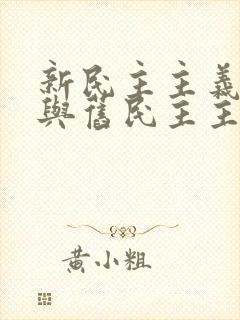 新民主主義
與舊民主主
黃小粗